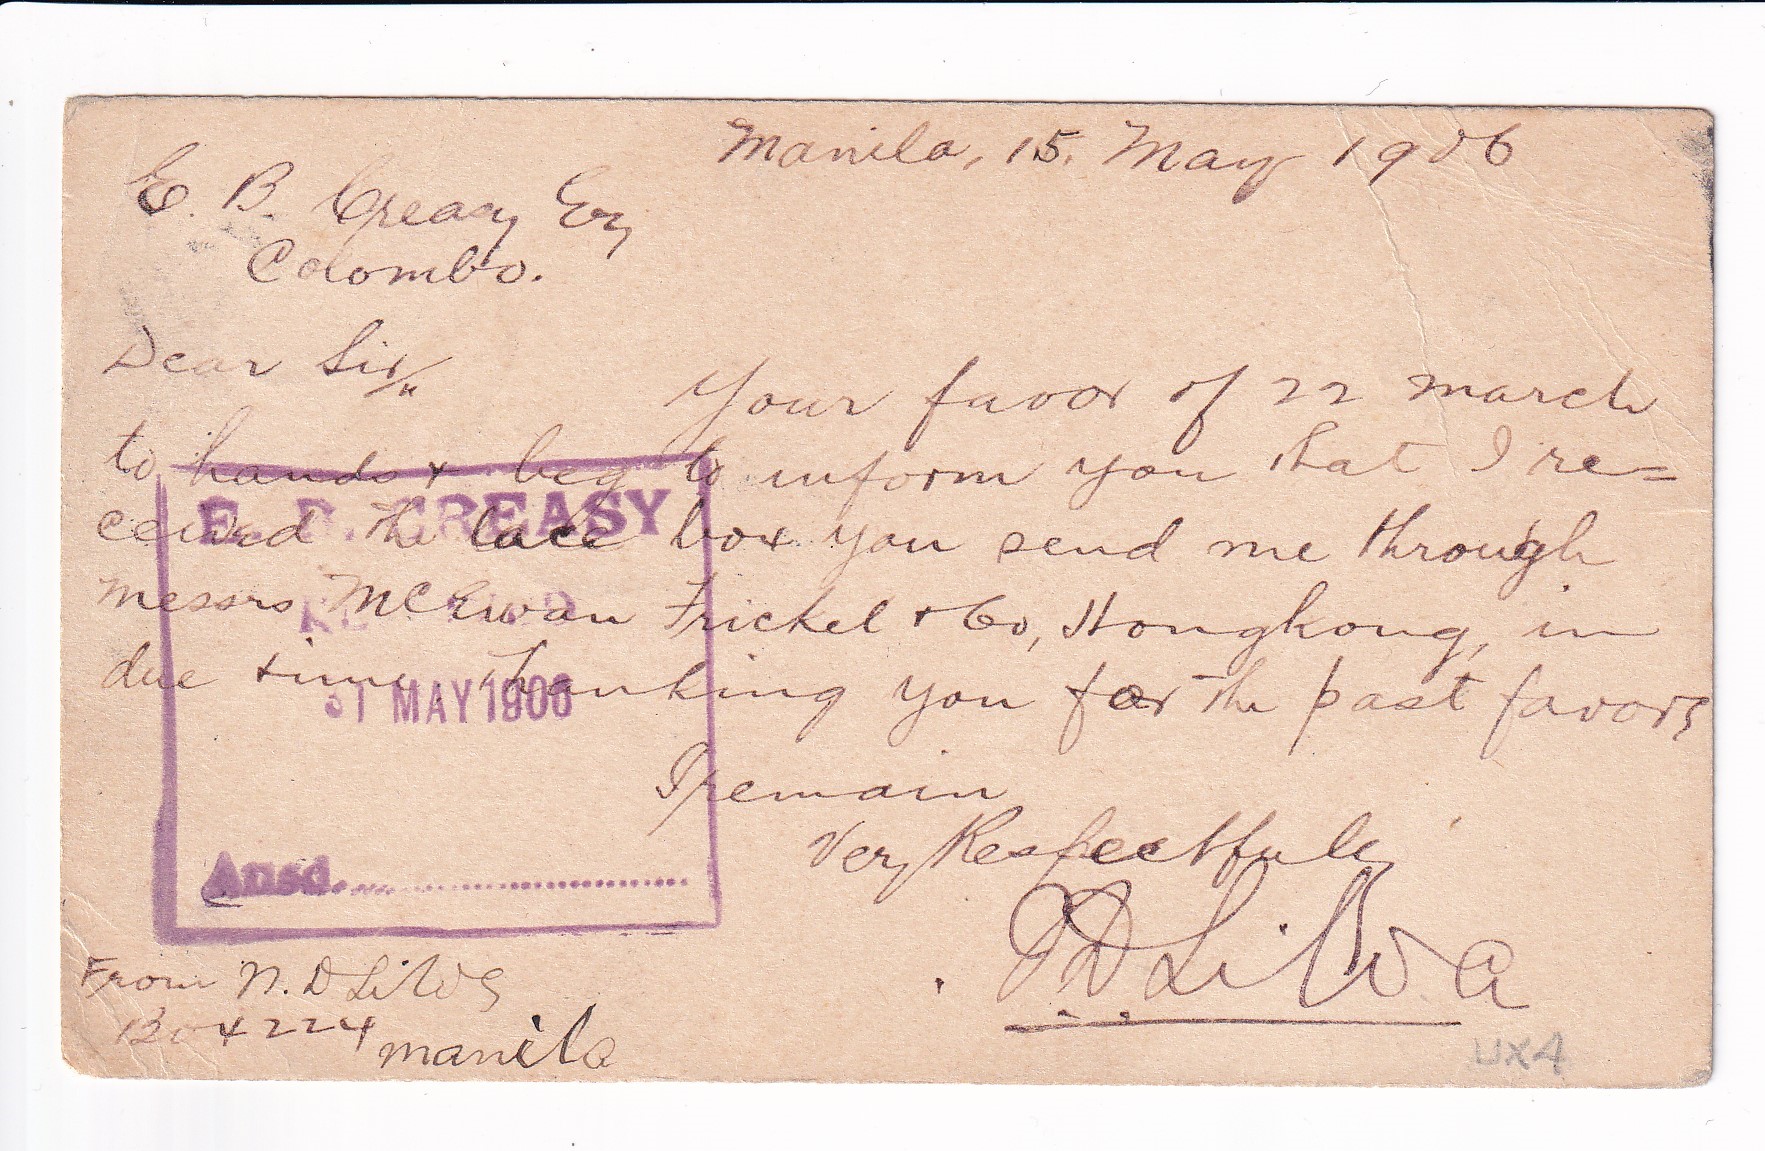 Manila, 15. May 1906
E. B. Creasy Esq,
Colombo.
Dear Sir,
Your favor of 22 march
to hands & beg to inform you that I re=
ceived the lace box you send me through
messrs McEwan Frickel & Co, Hongkong, in
due time thanking you for the past favors
I remain
Very Respectfuly
D Silva
E. B. CREASY
31 MAY 1906
Ansd.
From N. D Silva
Box 224
manila
UX4